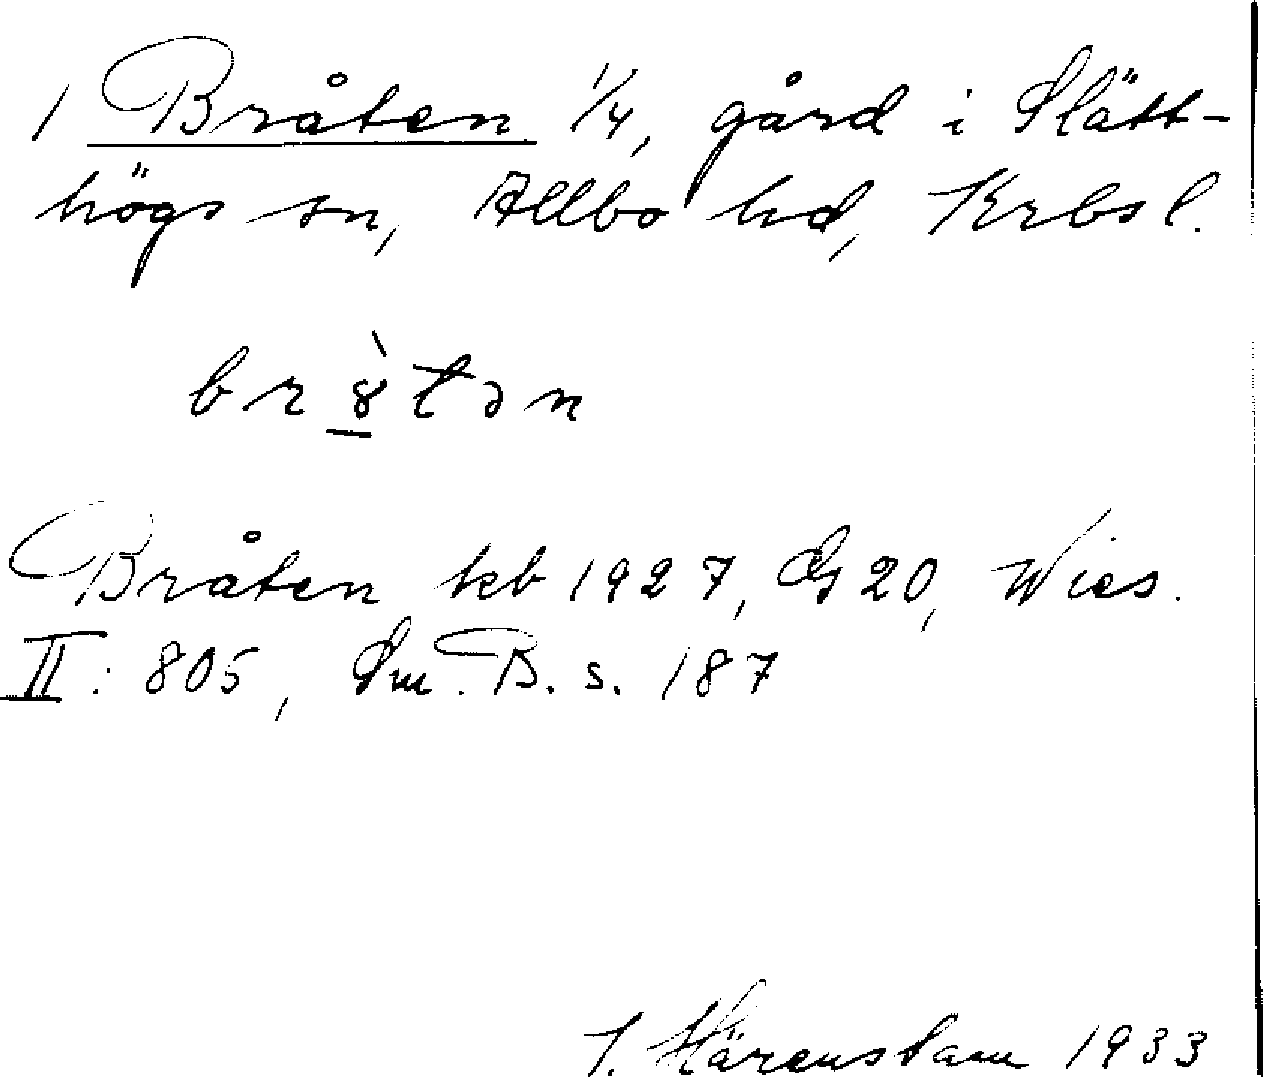 1 Bråten 1/4, gård i Slätt-
högs sn, Allbo hd, Krbsl.
br8̀tən
Bråten kb 1927, GS 20, Wies.
II: 805, Sm. B. s. 187
J. Härenstam 1933